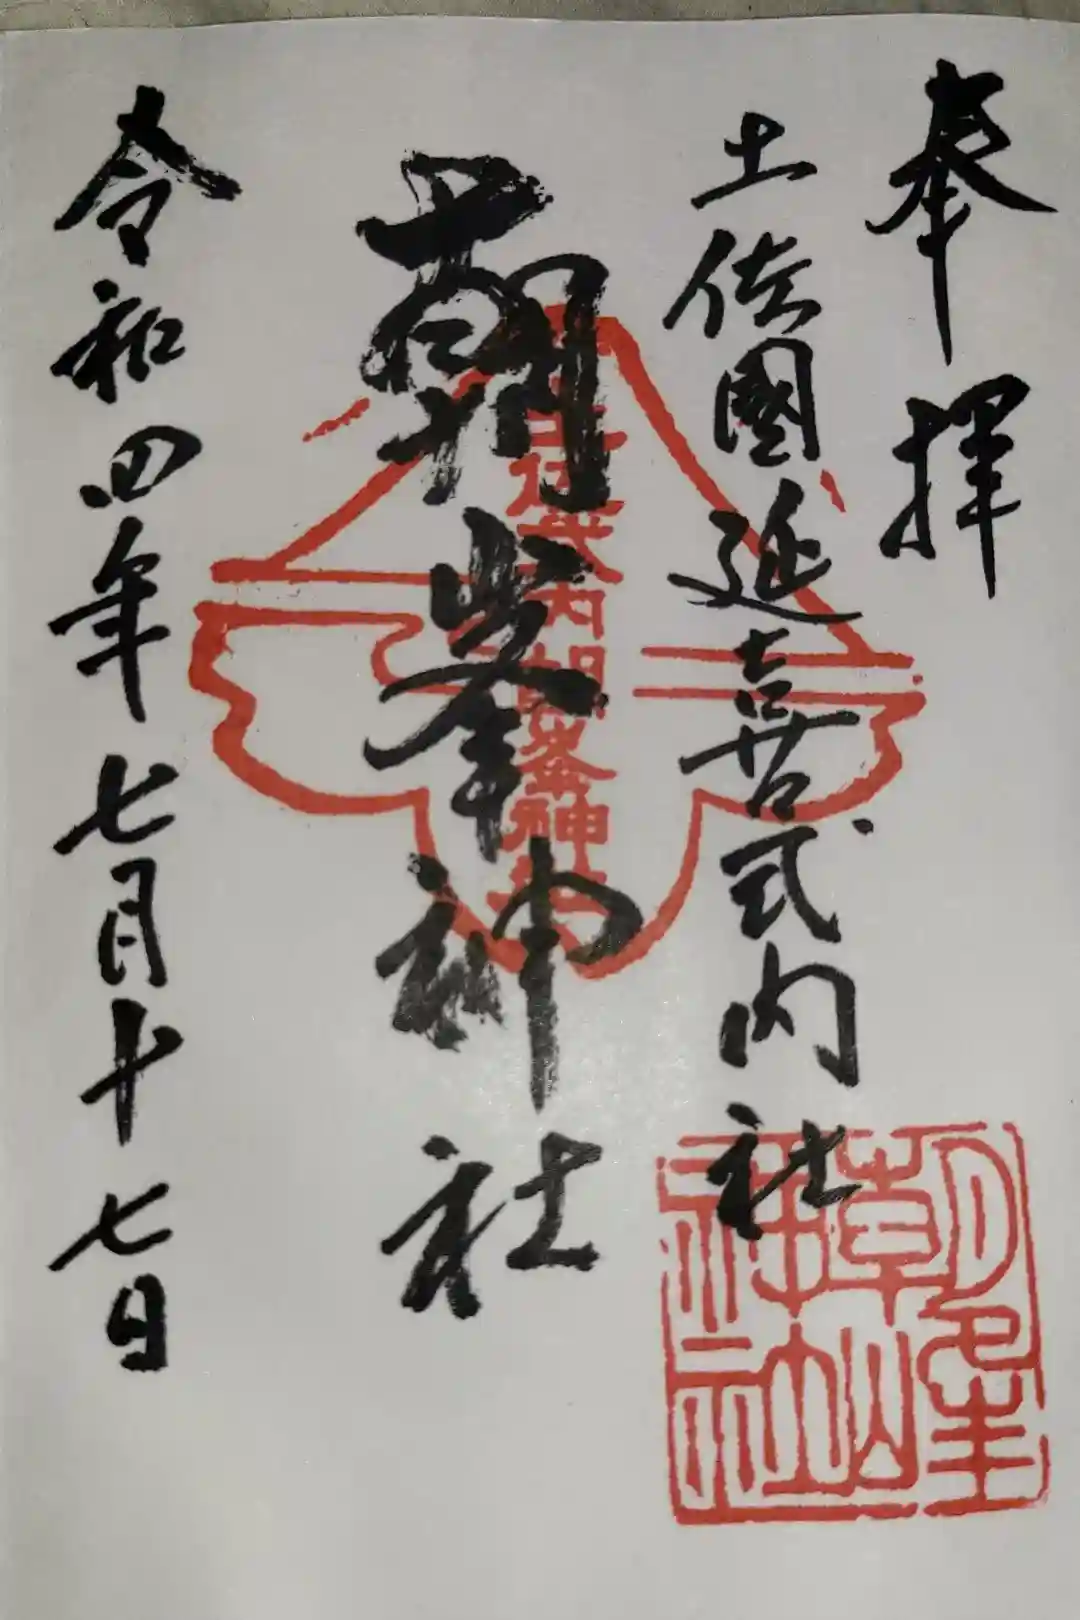 奉拝
土佐國延喜式内社
朝峯神社
土佐式内朝峯神社
令和四年七月十七日
朝峯神社